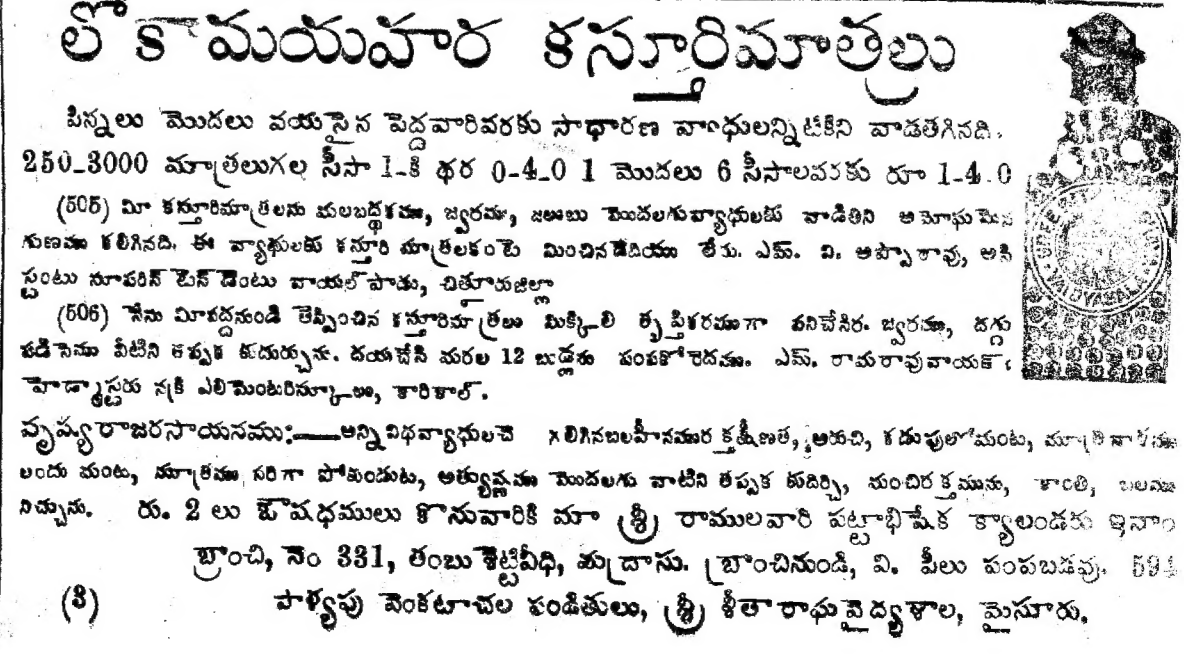 లోకామయహర కస్తూరిమాత్రలు
పిన్నలు మొదలు వయసైన పెద్దవారివరకు సాధారణ వ్యాధులన్నిటికిని వాడతగినది.
250-3000 మాత్రలుగల సీసా 1-కి ధర 0-4-0 1 మొదలు 6 సీసాలవరకు రూ 1-4-0
(505) మీ కస్తూరిమాత్రలను మలబద్ధకము, జ్వరము, జలుబు మొదలగువ్యాధులకు వాడితిని అమోఘమైన
గుణము కలిగినది. ఈ వ్యాధులకు కస్తూరి మాత్రలకంటె మించినదేదియు లేదు. ఎమ్. వి. అప్పారావు, అసి
స్టంటు సూపరిన్ టెన్ డెంటు వాయల్ పాడు, చిత్తూరుజిల్లా
(506) నేను మీవద్దనుండి తెప్పించిన కస్తూరిమాత్రలు మిక్కిలి తృప్తికరముగా పనిచేసెర. జ్వరము, దగ్గు
పడిసెము వీటిని తప్పక కుదుర్చును. దయచేసి మరల 12 బుడ్లను పంపకోరెదము. ఎమ్. రామారావువాయక్
హెడ్మాస్టరు నకి ఎలిమెంటరిస్కూలు, కారికాల్.
వృష్యరాజరసాయనము:—అన్నివిధవ్యాధులచే గలిగినబలహీనమురక్తక్షీణత, అరుచి, కడుపులోమంట, మూత్రనాళము
లందు మంట, మూత్రము సరిగా పోకుండుట, అత్యుష్ణము మొదలగు వాటిని తప్పక కుదిర్చి, మంచిరక్తమును, కాంతి, బలము
నిచ్చును. రు. 2 లు ఔషధములు కొనువారికి మా శ్రీ రాములవారి పట్టాభిషేక క్యాలండరు ఇనాం
బ్రాంచి, నెం 331, తంబుశెట్టివీధి, మద్రాసు. బ్రాంచినుండి, వి. పీలు పంపబడవు. 594
(కి) పాళ్యపు వెంకటాచల పండితులు, శ్రీ సీతారాఘవైద్యశాల, మైసూరు.